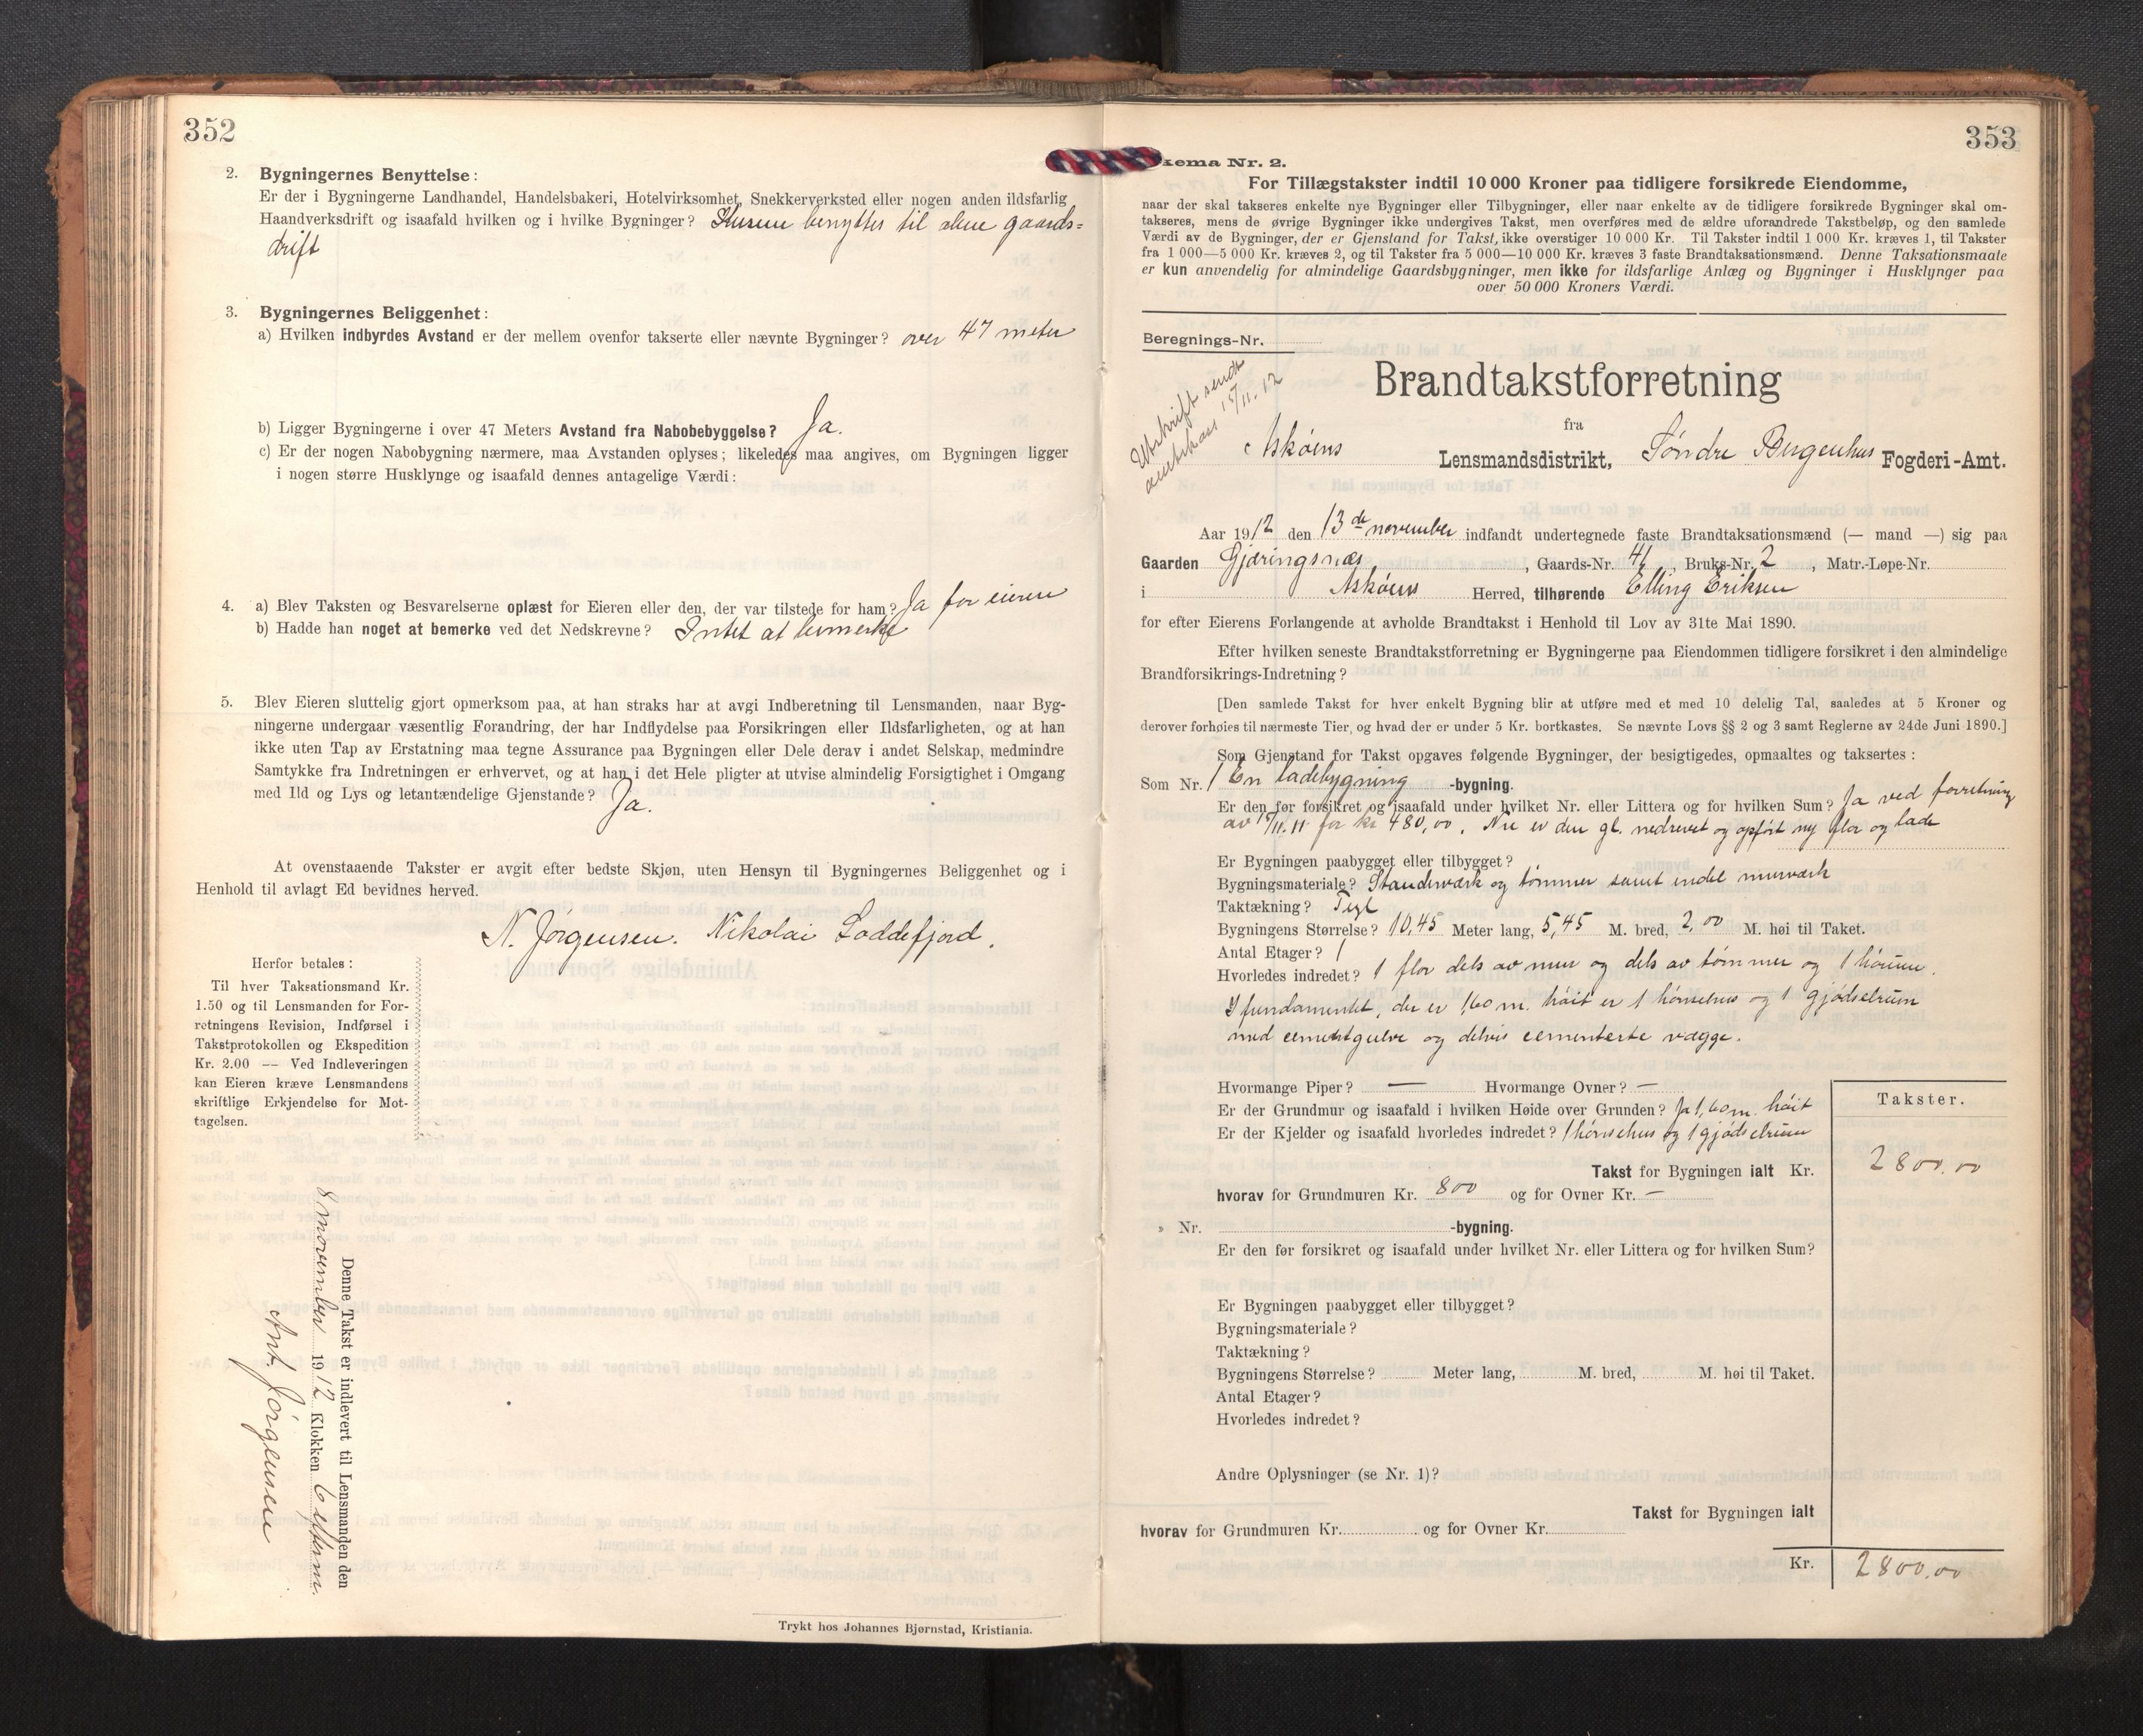 352
2. Bygningernes Benyttelse:
Er der i Bygningerne Landhandel, Handelsbakeri, Hotelvirksomhet, Snekkerverksted eller nogen anden ildsfarlig
Haandverksdrift og isaafald hvilken og i hvilke Bygninger? Husene benyttes til alm gaards=
drift
3. Bygningernes Beliggenhet:
a) Hvilken indbyrdes Avstand er der mellem ovenfor takserte eller nævnte Bygninger? over 47 meter
b) Ligger Bygningerne i over 47 Meters Avstand fra Nabobebyggelse? Ja.
c) Er der nogen Nabobygning nærmere, maa Avstanden oplyses; likeledes maa angives, om Bygningen ligger
i nogen større Husklynge og isaafald dennes antagelige Værdi:
4. a) Blev Taksten og Besvarelserne oplæst for Eieren eller den, der var tilstede for ham? Ja for eieren
b) Hadde han noget at bemerke ved det Nedskrevne? Intet at bemerke
5. Blev Eieren sluttelig gjort opmerksom paa, at han straks har at avgi Indberetning til Lensmanden, naar Byg-
ningerne undergaar væsentlig Forandring, der har Indflydelse paa Forsikringen eller Ildsfarligheten, og at han
ikke uten Tap av Erstatning maa tegne Assurance paa Bygningen eller Dele derav i andet Selskap, medmindre
Samtykke fra Indretningen er erhvervet, og at han i det Hele pligter at utvise almindelig Forsigtighet i Omgang
med Ild og Lys og letantændelige Gjenstande? Ja.
At ovenstaaende Takster er avgit efter bedste Skjøn, uten Hensyn til Bygningernes Beliggenhet og i
Henhold til avlagt Ed bevidnes herved.
N. Jørgensen. Nikolai Loddefjord.
Herfor betales:
Til hver Taksationsmand Kr.
1.50 og til Lensmanden for For-
retningens Revision, Indførsel i
Takstprotokollen og Ekspedition
Kr. 2.00 — Ved Indleveringen
kan Eieren kræve Lensmandens
skriftlige Erkjendelse for Mot-
tagelsen.
Denne Takst er indlevert til Lensmanden den
november 1912 Klokken 6 efterm.
Ant. Jørgensen
Trykt hos Johannes Bjørnstad, Kristiania.
353
kema Nr. 2.
For Tillægstakster indtil 10 000 Kroner paa tidligere forsikrede Eiendomme,
naar der skal takseres enkelte nye Bygninger eller Tilbygninger, eller naar enkelte av de tidligere forsikrede Bygninger skal om-
takseres, mens de øvrige Bygninger ikke undergives Takst, men overføres med de ældre uforandrede Takstbeløp, og den samlede
Værdi av de Bygninger, der er Gjenstand for Takst, ikke overstiger 10 000 Kr. Til Takster indtil 1 000 Kr. kræves 1, til Takster
fra 1 000—5 000 Kr. kræves 2, og til Takster fra 5 000—10 000 Kr. kræves 3 faste Brandtaksationsmænd. Denne Taksationsmaate
er kun anvendelig for almindelige Gaardsbygninger, men ikke for ildsfarlige Anlæg og Bygninger i Husklynger paa
over 50 000 Kroners Værdi.
Beregnings-Nr.
Utskrift sendt
15/11.12
Brandtakstforretning
fra
Askøens Lensmandsdistrikt, Søndre Bergenhus Fogderi-Amt.
Aar 1912 den 13de november indfandt undertegnede faste Brandtaksationsmænd (— mand —) sig paa
Gaarden Gjæringsnæs, Gaards-Nr. 4, Bruks-Nr. 2, Matr.-Løpe-Nr.
i Askøens Herred, tilhørende Elling Eriksen
for efter Eierens Forlangende at avholde Brandtakst i Henhold til Lov av 31te Mai 1890.
Efter hvilken seneste Brandtakstforretning er Bygningerne paa Eiendommen tidligere forsikret i den almindelige
Brandforsikrings-Indretning?
[Den samlede Takst for hver enkelt Bygning blir at utføre med et med 10 delelig Tal, saaledes at 5 Kroner og
derover forhøies til nærmeste Tier, og hvad der er under 5 Kr. bortkastes. Se nævnte Lovs §§ 2 og 3 samt Reglerne av 24de Juni 1890.]
Som Gjenstand for Takst opgaves følgende Bygninger, der besigtigedes, opmaaltes og taksertes:
Som Nr. 1 En ladebygning -bygning.
Er den før forsikret og isaafald under hvilket Nr. eller Littera og for hvilken Sum? Ja ved forretning
av 15/11.11 for kr 480,00. Nu er den gl. nedrevet og opført ny flor og lade
Er Bygningen paabygget eller tilbygget?
Bygningsmateriale? Standerværk og tømmer samt endel murværk
Taktækning? Tegl
Bygningens Størrelse? 10,45 Meter lang, 5,45 M. bred, 2,00 M. høi til Taket.
Antal Etager? 1
Hvorledes indredet? 1 flor dels av mur og dels av tømmer og 1 hørum.
I fundamentet, der er 1,60 m. høit er 1 hønsehus og 1 gjødselrum
med cementgulve og delvis cementerte vægge.
Hvormange Piper? — Hvormange Ovner? —
Er der Grundmur og isaafald i hvilken Høide over Grunden? Ja 1,60 m. høit
Er der Kjelder og isaafald hvorledes indredet? 1 hønsehus og 1 gjødselrum
Takster.
Takst for Bygningen ialt Kr. 2800,00
hvorav for Grundmuren Kr. 800 og for Ovner Kr. —
» Nr. -bygning.
Er den før forsikret og isaafald under hvilket Nr. eller Littera og for hvilken Sum?
Er Bygningen paabygget eller tilbygget?
Bygningsmateriale?
Taktækning?
Bygningens Størrelse? Meter lang, M. bred, M. høi til Taket.
Antal Etager?
Hvorledes indredet?
Andre Oplysninger (se Nr. 1)?
Takst for Bygningen ialt
hvorav for Grundmuren Kr. og for Ovner Kr.
Kr. 2800,00